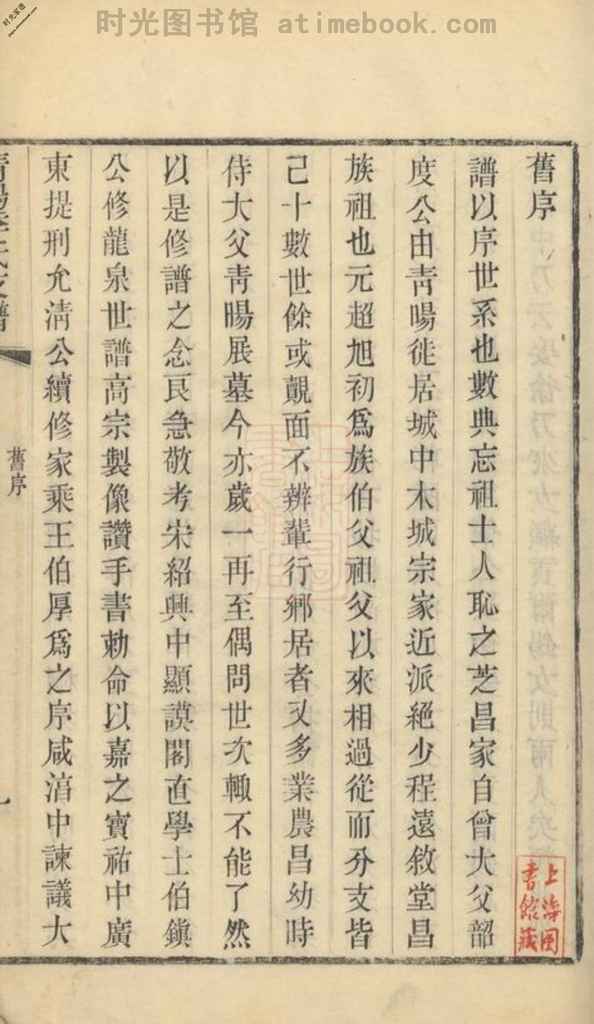 时光图书馆 atimebook.com
舊序
譜以序世系也數典忘祖士人恥之芝昌家自曾大父韶
度公由青暘徙居城中木城宗家近派絕少程遠敘堂昌
族祖也元超旭初爲族伯父祖父以來相過從而分支皆
己十數世餘或覿面不辨輩行鄉居者又多業農昌幼時
侍大父青暘展墓今亦歲一再至偶問世次輒不能了然
以是修譜之念艮急敬考宋紹興中顯謨閣直學士伯鎮
公修龍泉世譜高宗製像讚手書勅命以嘉之寶祐中廣
東提刑允淸公續修家乘王伯厚爲之序咸湻中諫議大
舊序
上海圖書館藏